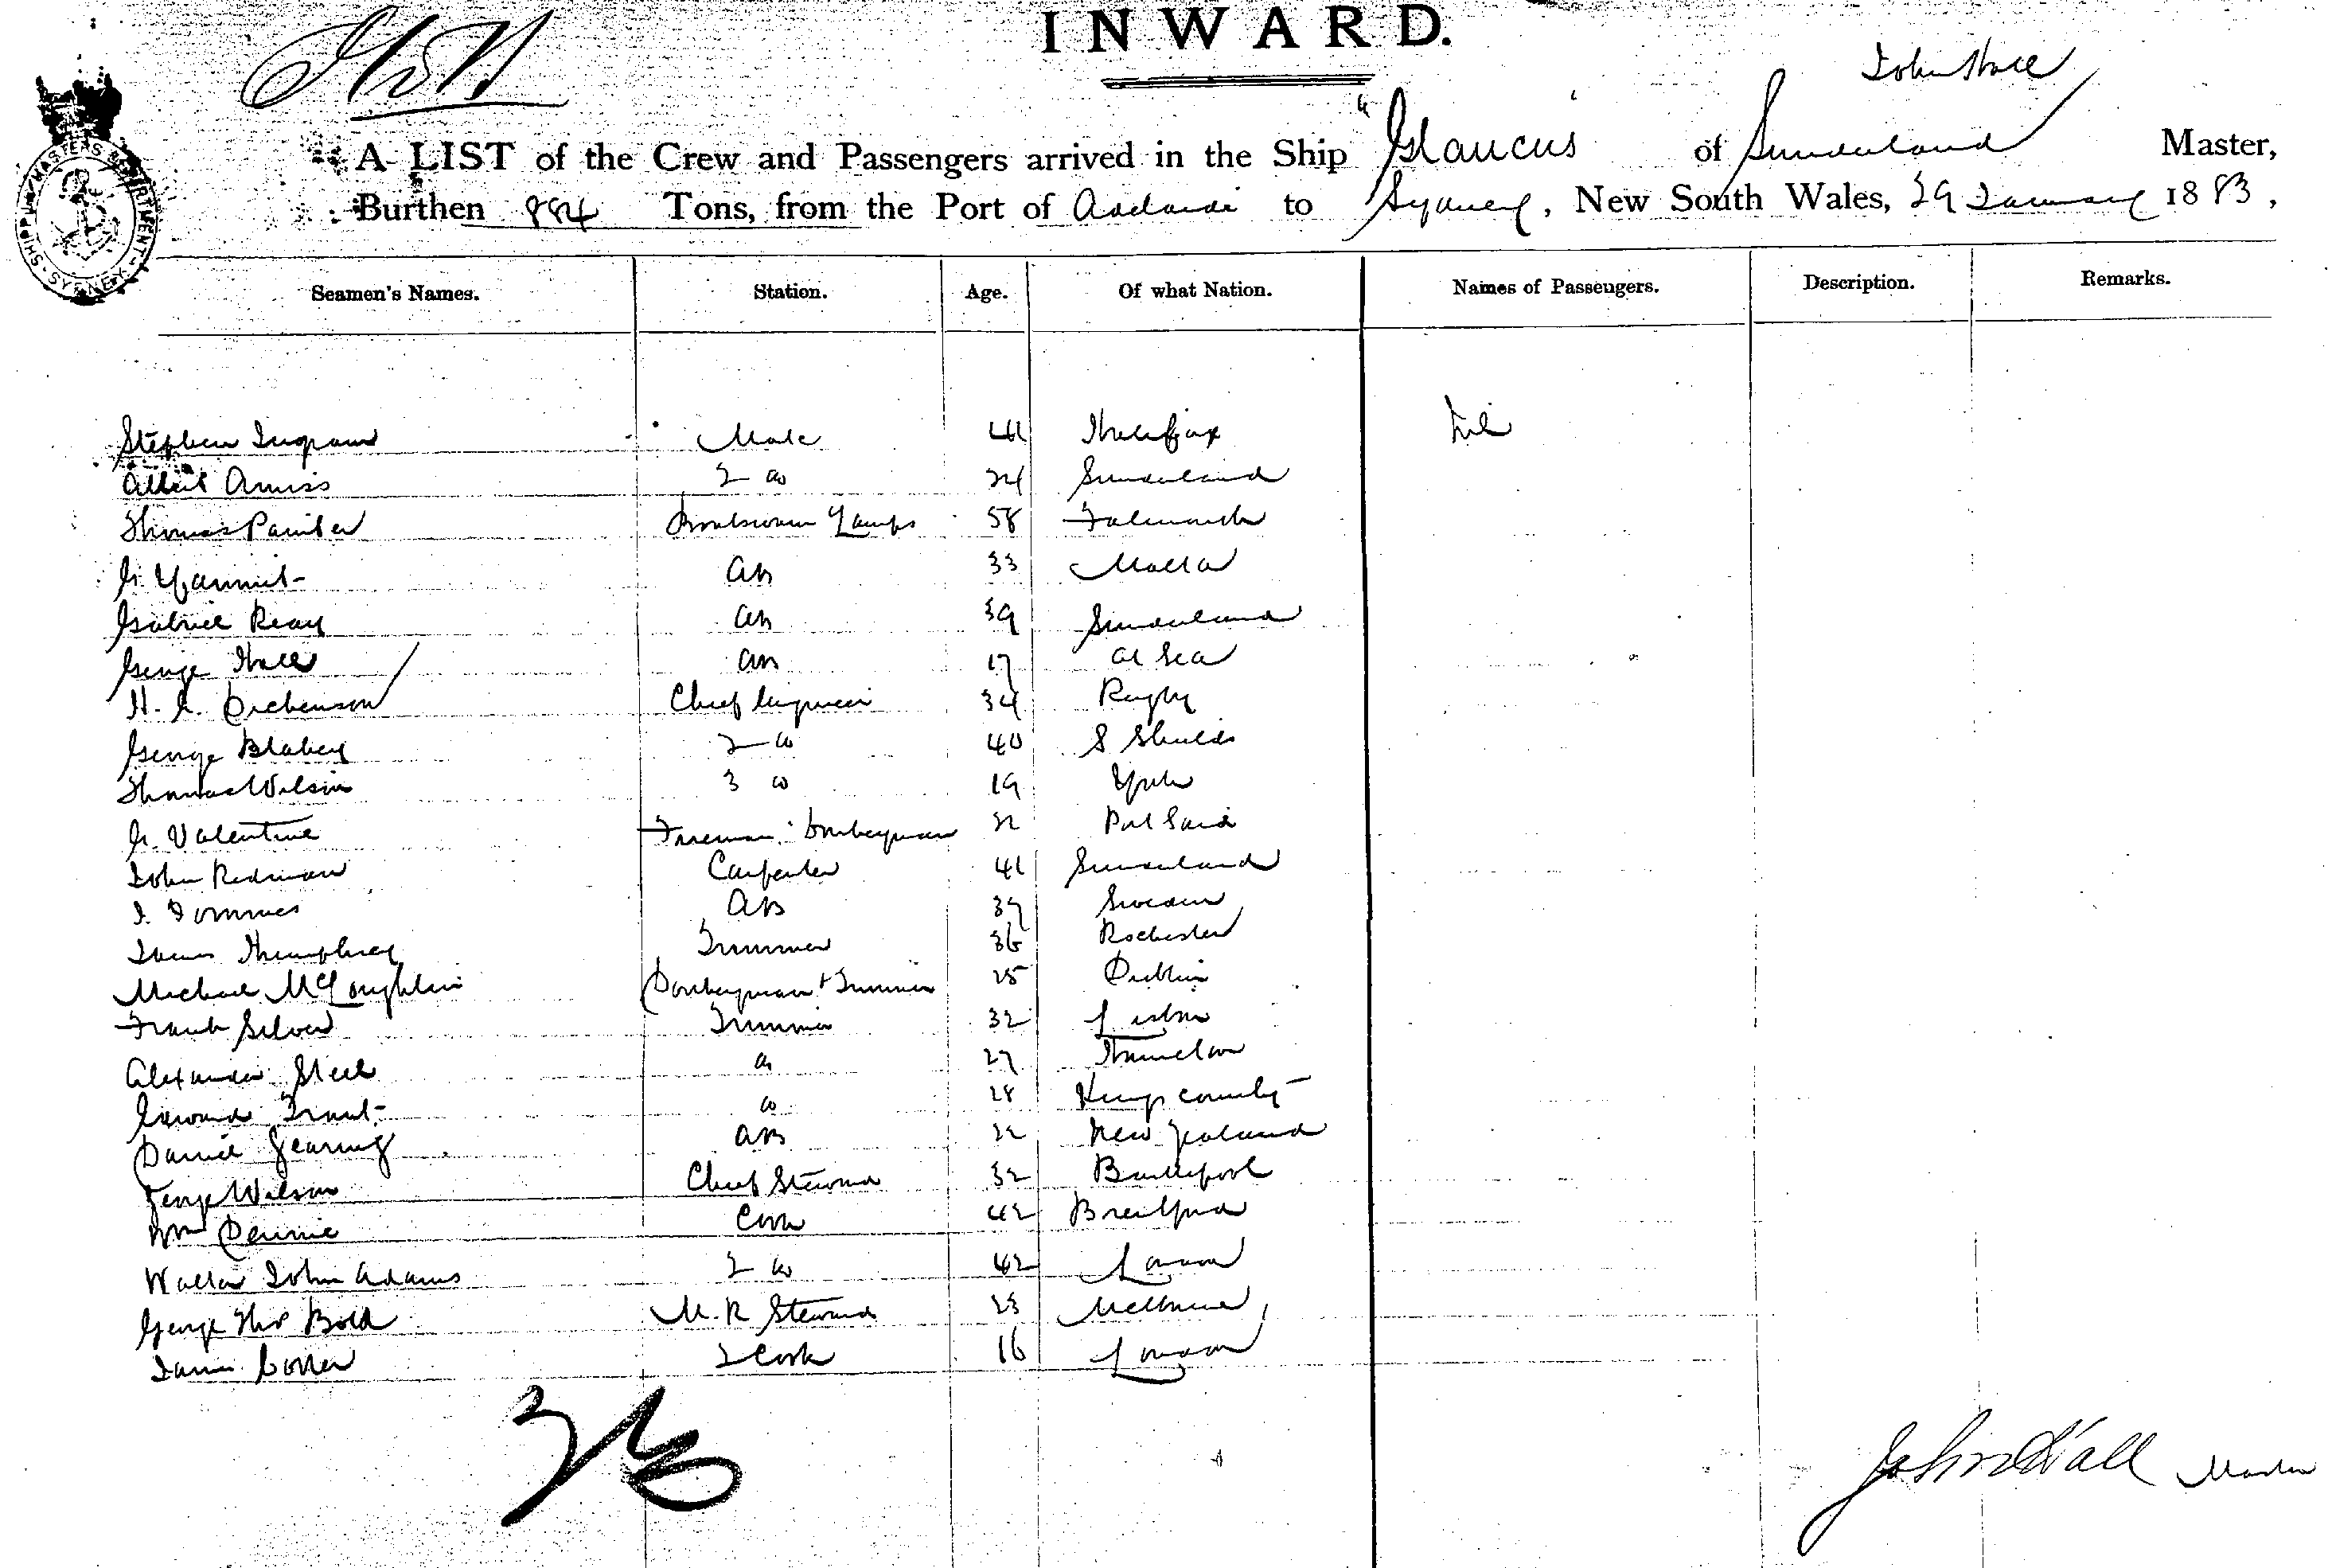 INWARD.
John Hall
A LIST of the Crew and Passengers arrived in the Ship "Glaucus" of Sunderland Master,
Burthen 884 Tons, from the Port of Adelaide to Sydney, New South Wales, 29 January 1883,
SHIPPING MASTERS DEPARTMENT SYDNEY
Seamen's Names. Station. Age. Of what Nation. Names of Passengers. Description. Remarks.
Stephen Ingram Mate 41 Halifax Nil
Albert Amiss 2 do 24 Sunderland
Thomas Painter Boatswain Lamps 58 Falmouth
G. AB 33 Malta
Gabriel Reay AB 39 Sunderland
George Hall AB 17 At Sea
H. Dickenson Chief Engineer 34 Rugby
George Blakey 2 do 40 S Shields
Thomas Wilson 3 do 19
G. Valentine Fireman Donkeyman 32 Port Said
John Redman Carpenter 41 Sunderland
AB Sweden
James Humphrey Trimmer 36 Rochester
Michael McLoughlin Donkeyman + Trimmer 25 Dublin
Frank Silver Trimmer 32 Lisbon
Alexander Steel do 27 Hamilton
Edward Trant do 28 Kings County
Daniel Gearing AB 22 New Zealand
George Wilson Chief Steward 32
Wm Dennie Cook 42 Brentford
Walter John Adams 2 do 42 London
George Thos Bold M.R Steward 23 Melbourne
James 2 Cook 16 London
John Hall Master